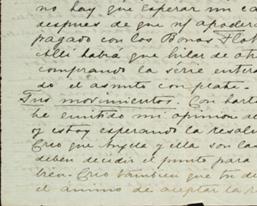 no hay que esperar un ca
despues de que mi apodera
pagado con los Bonos Flot
Alli habrá que hilar de otr
comprando la serie entera
do el asunto con plata.
Tus movimientos. Con harto
he emitido mi opinion al
y estoy esperando la resolu
Creo que Angela y ella son las
deben decidir el punto para
bien. Creo tambien que tu de
el animo de aceptar la r